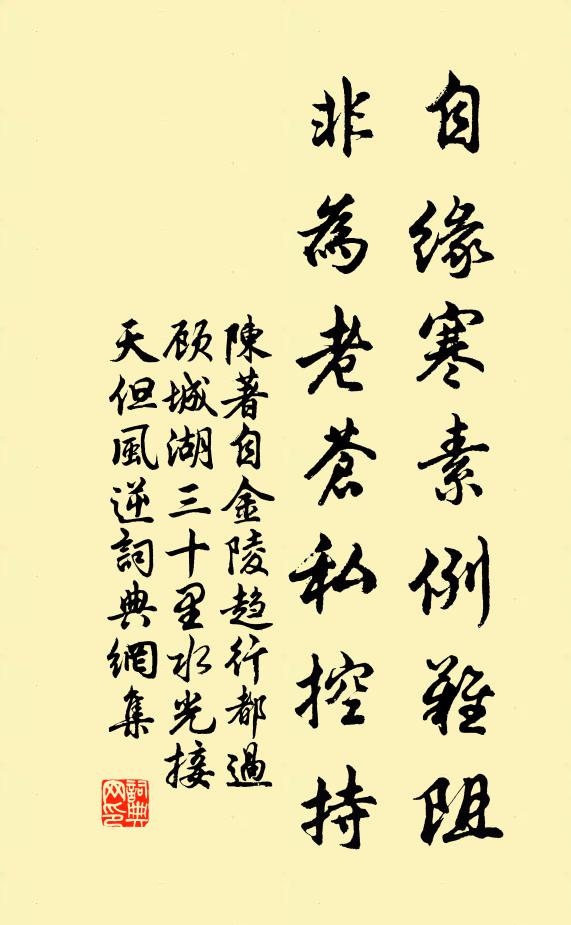 自缘寒素例難阻
非為老蒼私控持
陳著自金陵趋行都過
顾城湖三十里水光接
天但風逆詞典網集
詞典
网印